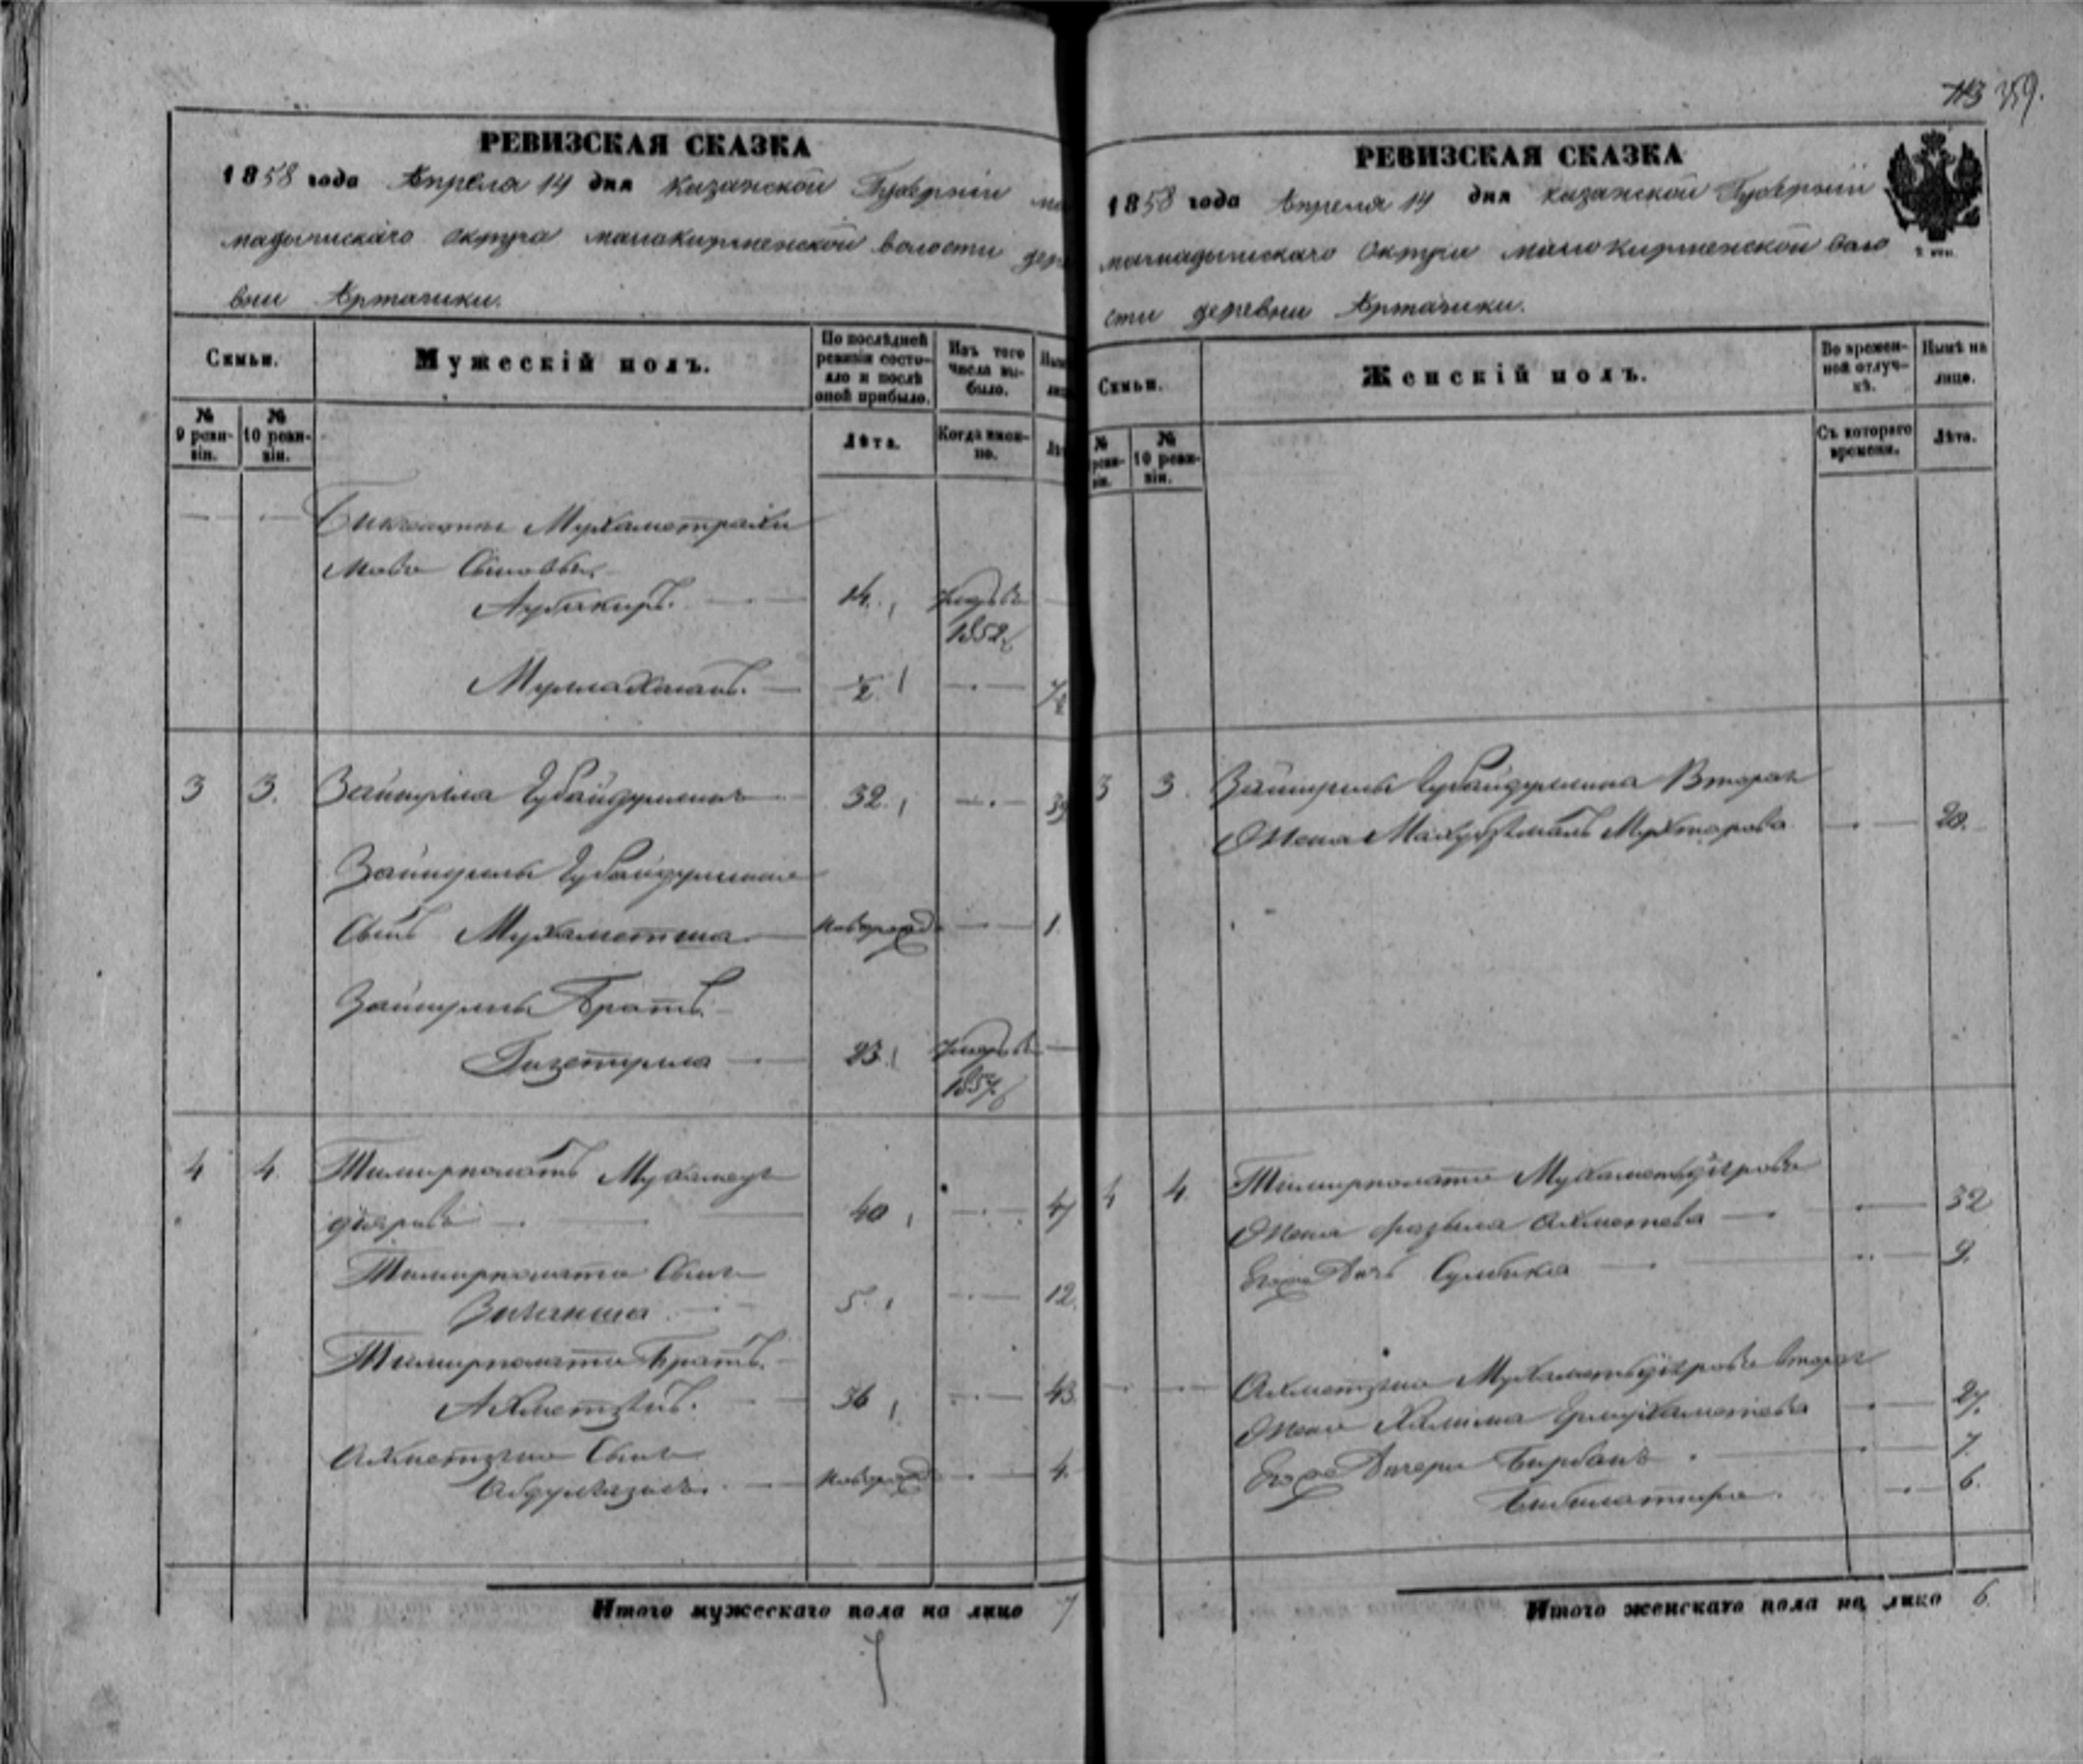 РЕВИЗСКАЯ СКАЗКА
1858 года Апреля 14 дня Казанской Губерніи ма
мадышскаго округа малокирменской волости дере
вни Артачики.
Семьи.
Мужескій полъ.
По послѣдней ревизіи состояло и послѣ оной прибыло.
Изъ того числа выбыло.
№ 9 ревизіи.
№ 10 ревизіи.
Лѣта.
Когда именно.
Мухаметрахи
мова Сыновья
Аубакиръ. 14. умеръ въ
1852
½
3 3. Зайнулла Губайдуллинъ 32. 39
Зайнуллы Губайдуллина
Сынъ Мухаметша новорожд 1
Зайнуллы Братъ
23. умеръ въ
185
4 4. Тимирполатъ Мухамедъ
дiяровъ 40 47
Тимирполата Сынъ
5. 12.
Тимирполата Братъ.
Ахметзянъ. 36 43.
Ахметзяна Сынъ
новорожд 4.
Итого мужескаго пола на лицо 7
7
113 359.
РЕВИЗСКАЯ СКАЗКА
1858 года Апреля 14 дня Казанской Губерніи
мамадышскаго Округа малокирменской воло
сти деревни Артачики.
2 коп.
Семьи.
Женскій полъ.
Во временной отлучкѣ.
Нынѣ на лицо.
№ ревизіи.
№ 10 ревизіи.
Съ котораго времени.
Лѣта.
3 3. Зайнуллы Губайдуллина Вторая
Жена Мухтарова 20.
4 4. Тимирполата Мухаметьдiярова
Жена Ахметева 32
Его Дочь Сулбика 9.
Ахметзяна Мухаметьдiярова вторая
Жена Халима Ермухаметева 27.
Его Дочери 7.
6.
Итого женскаго пола на лицо 6